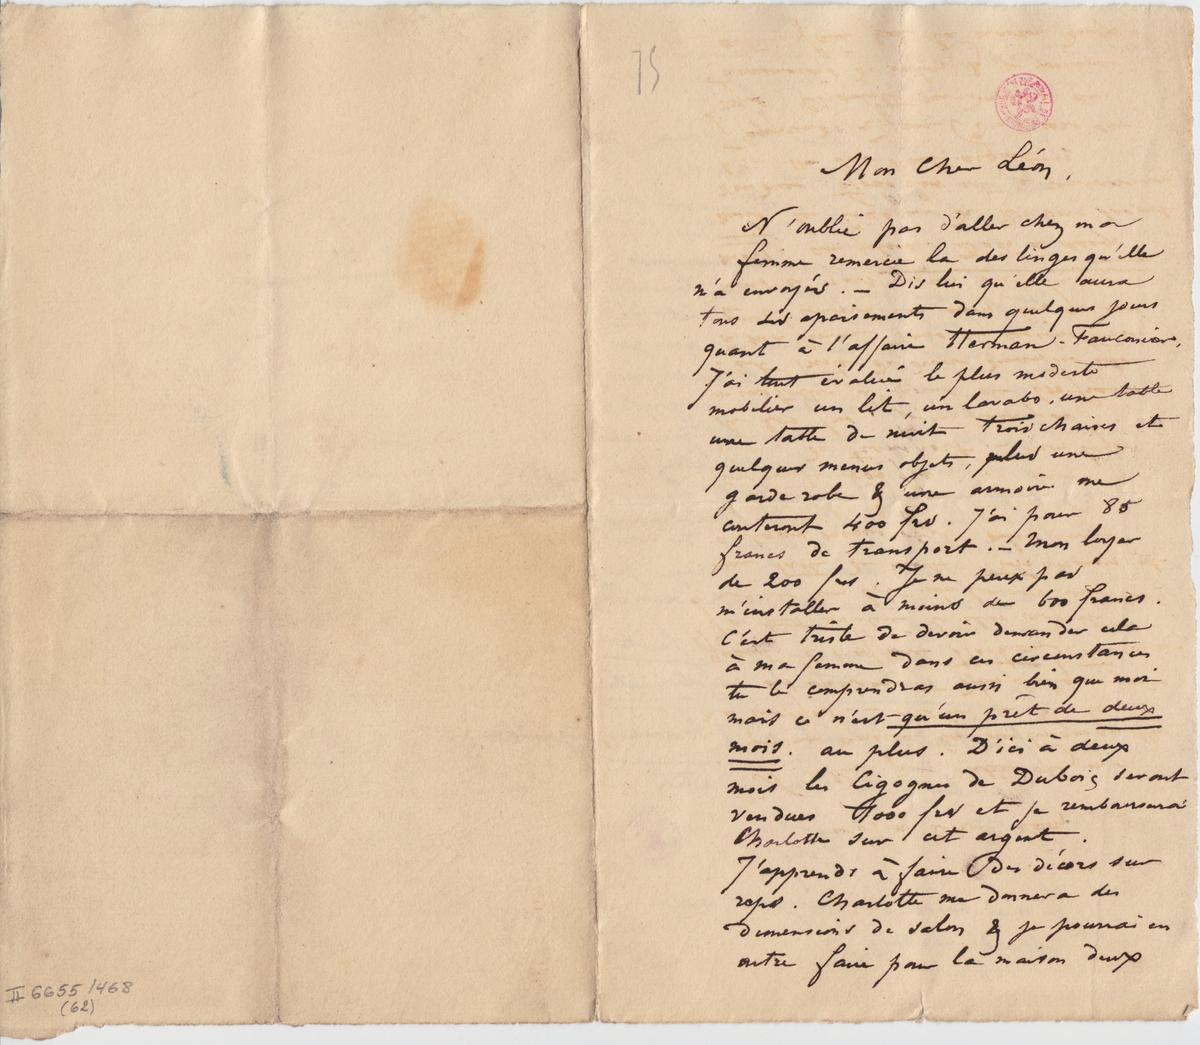 75
Mon cher Léon,
N'oublie pas d'aller chez ma
femme remercie la des linges qu'elle
m'a envoyés. – Dis lui qu'elle aura
tous les apaisements dans quelques jours
quant à l'affaire Herman-Fauconnier,
J'ai évalué le plus modeste
mobilier un lit, un lavabo, une table
une table de nuit trois chaises et
quelques menus objets, plus une
garde robe & une armoire me
couteront 400 frs. J'ai pour 85
francs de transport. – Mon loyer
de 200 frs. Je ne peux pas
m'installer à moins de 600 francs.
C'est triste de devoir demander cela
à ma femme dans ces circonstances
tu le comprendras aussi bien que moi
mais ce n'est qu'un prêt de deux
mois. au plus. D'ici à deux
mois les Cigognes de Dubois seront
vendues 1000 frs et je rembourserai
Charlotte sur cet argent.
J'apprends à faire des décors sur
reps. Charlotte me donnera des
dimensions de salon & je pourrai en
outre faire pour la maison deux
II 6655/468
(62)